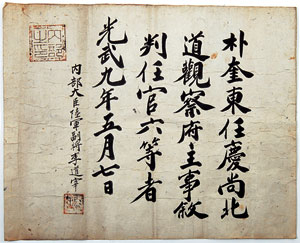 朴奎東任慶尚北
道觀察府主事敘
判任官六等者
光武九年五月七日
內部大臣陸軍副將李道宰
內部之印